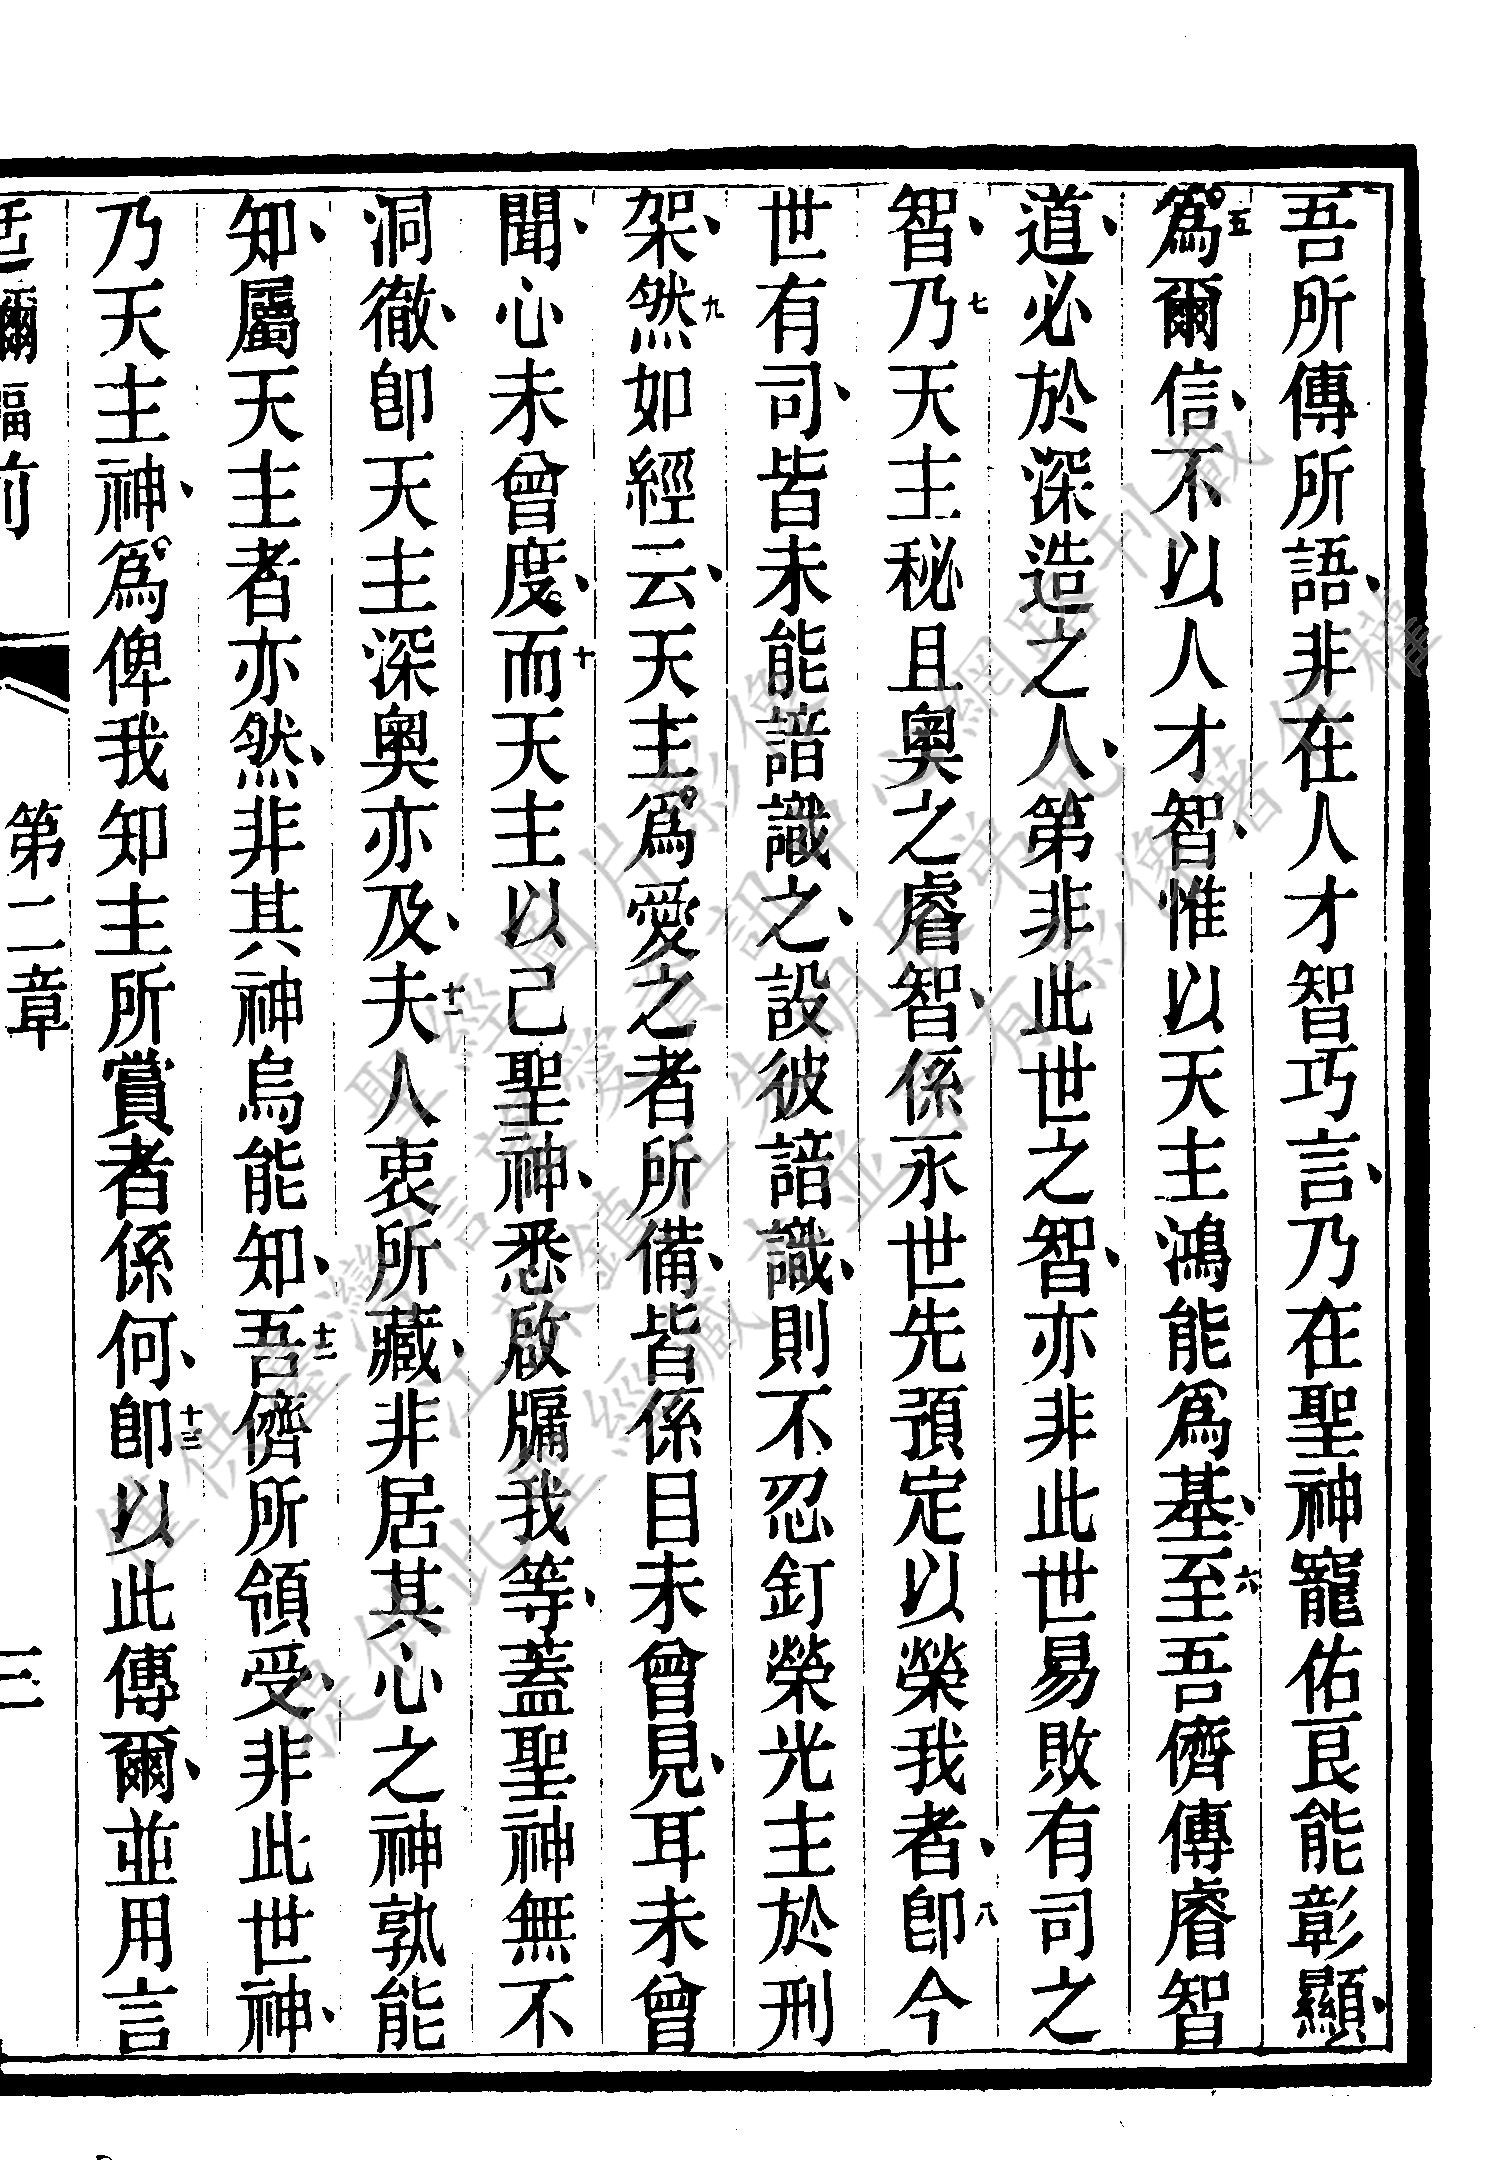 吾所傳所語、非在人才智巧言、乃在聖神寵佑良能彰顯、
五爲爾信、不以人才智、惟以天主鴻能爲基、六至吾儕傳睿智
道、必於深造之人、第非此世之智、亦非此世易敗有司之
智、七乃天主秘且奧之睿智、係永世先預定以榮我者、八卽今
世有司、皆未能諳識之、設彼諳識、則不忍釘榮光主於刑
架、九然如經云、天主爲愛之者所備、皆係目未曾見、耳未曾
聞、心未曾度、十而天主以己聖神、悉啟牖我等、蓋聖神無不
洞徹、卽天主深奧亦及、十一夫人衷所藏、非居其心之神孰能
知、屬天主者亦然、非其神烏能知、十二吾儕所領受、非此世神、
乃天主神、爲俾我知主所賞者係何、十三卽以此傳爾、並用言
第二章
三